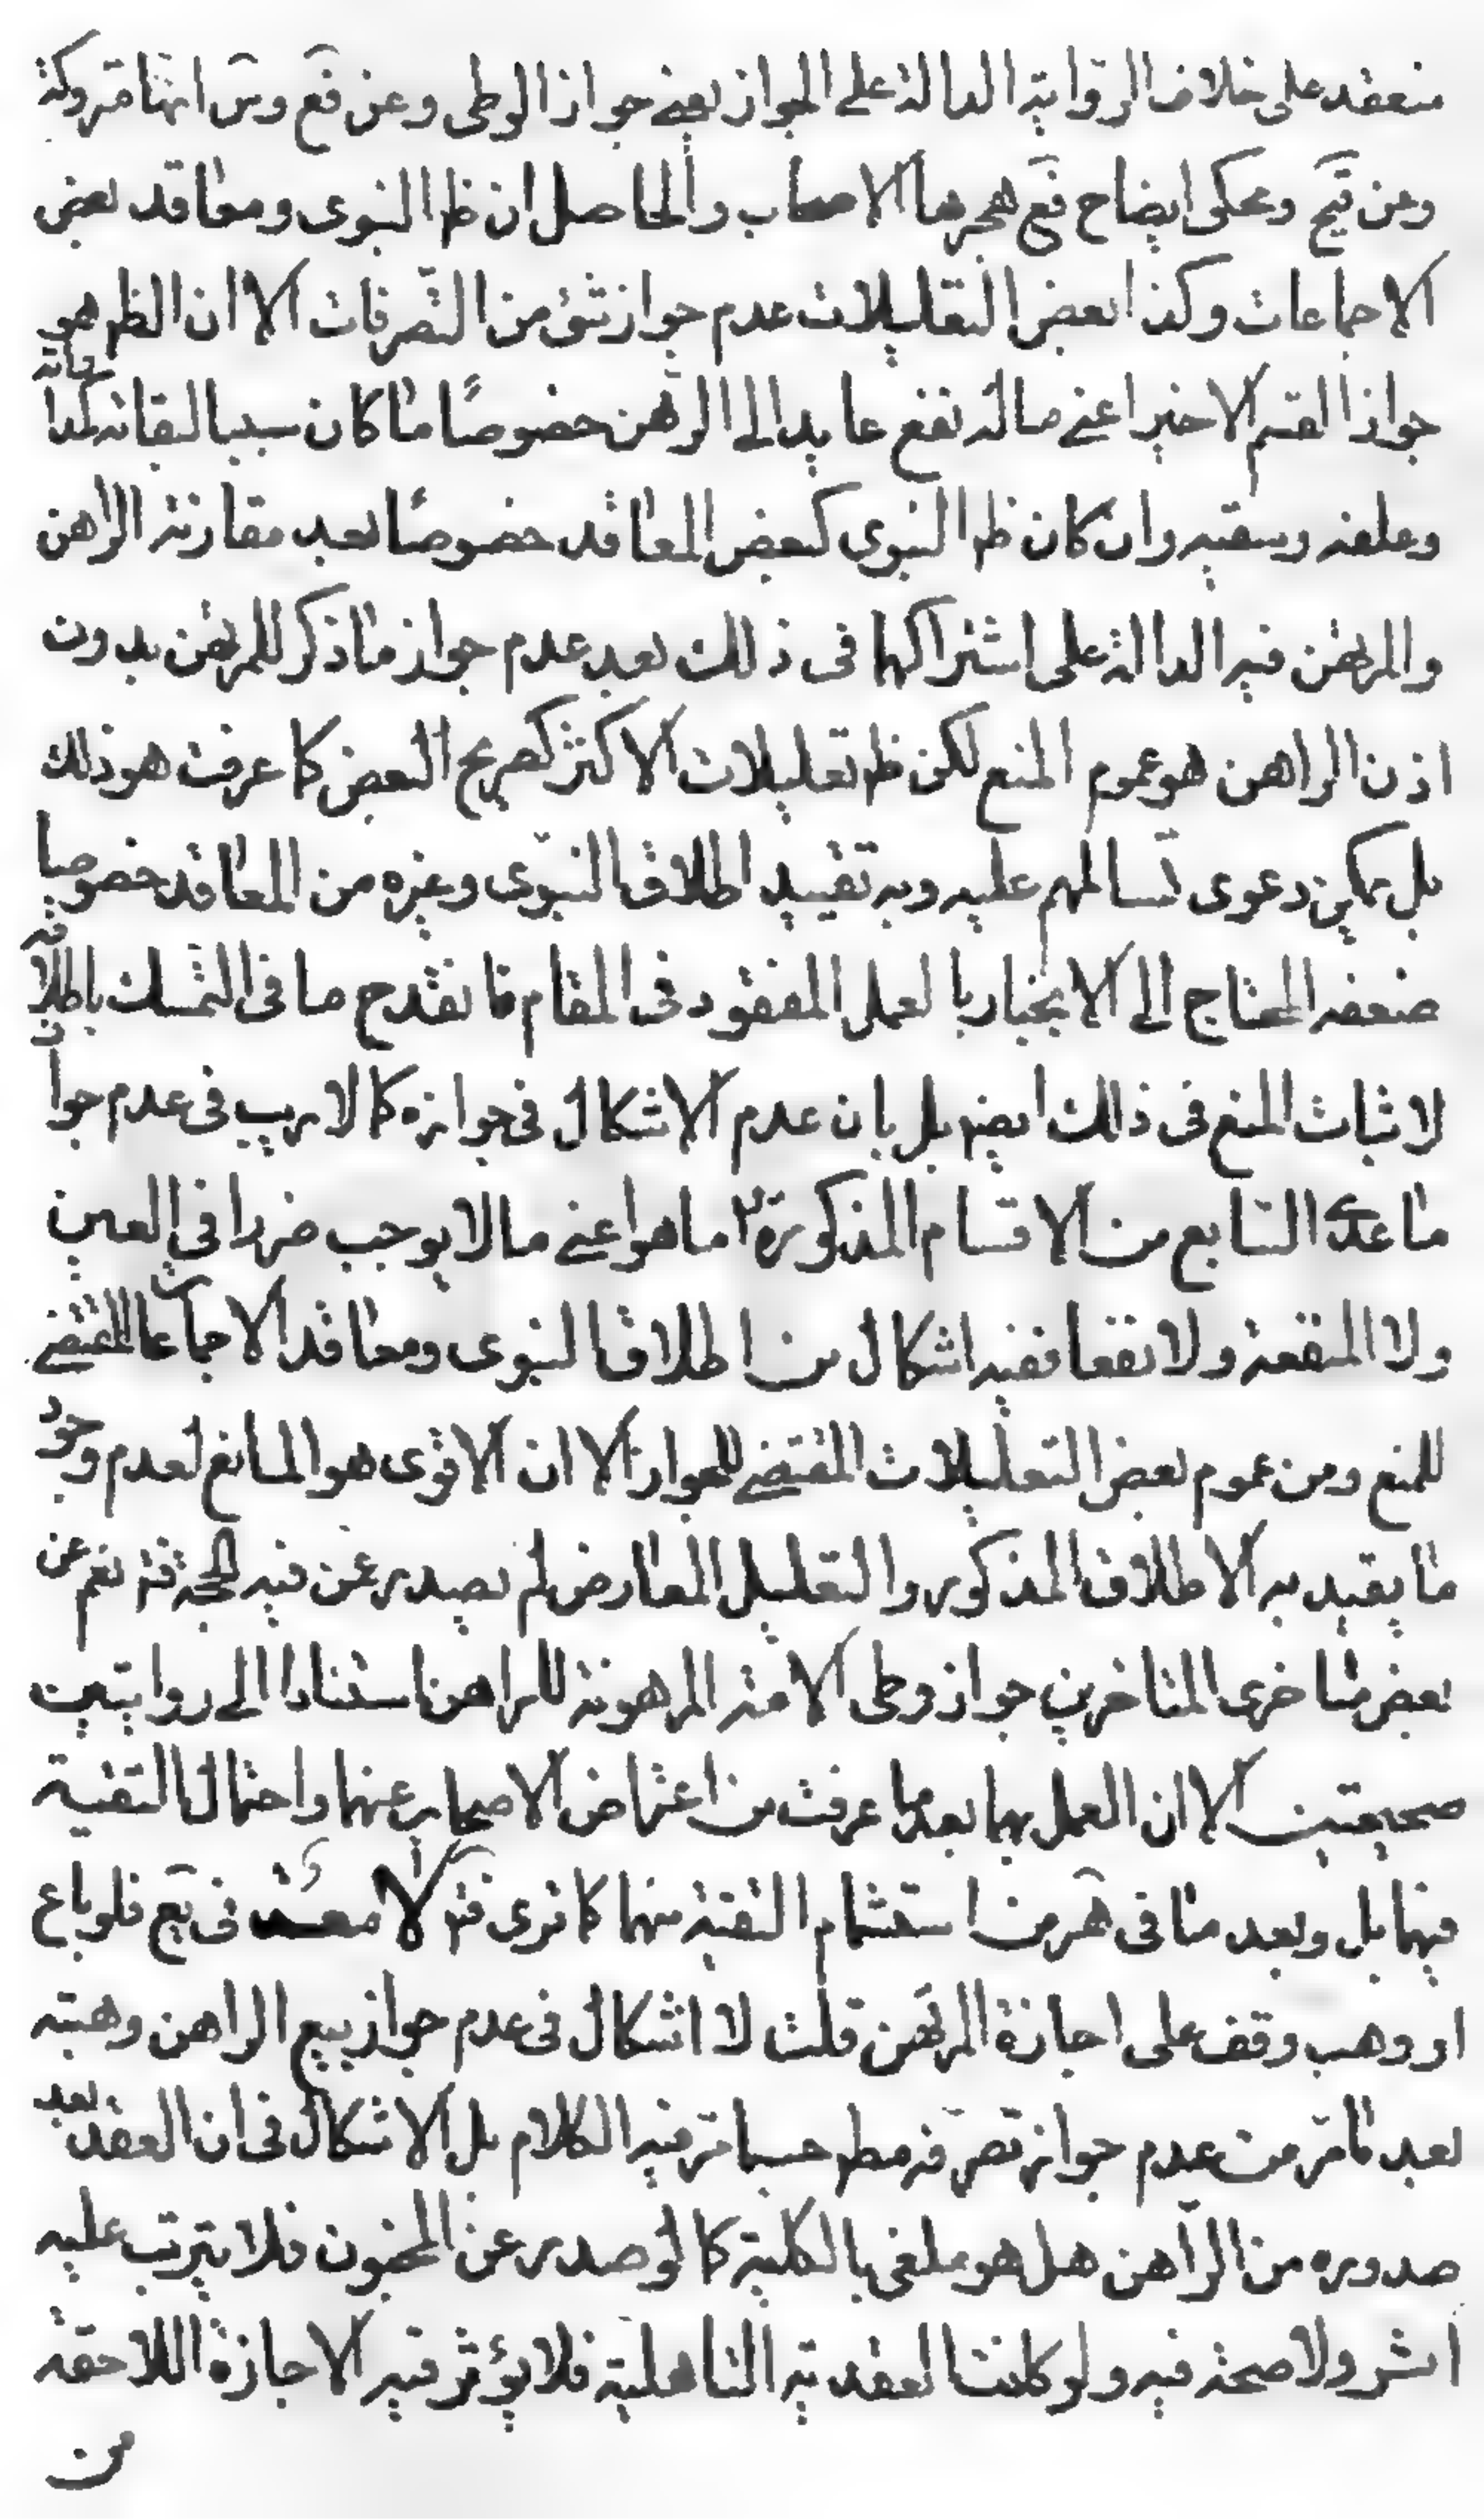 منعقد على خلاف الرواية الدالة على الجواز يعنى جواز الوطى وعن فع وس انها متروكة
وعن قيح ومحكى ايضاح فع هجرها الاصحاب والحاصل ان ظ النبوى ومعاقد بعض
الاجماعات وكذا بعض التعليلات عدم جواز شئ من التصرفات الا ان الظ هو
جواز القسم الاخير اعنى ماله نفع عايد الى الرهن خصوصًا ما كان سببا لبقائه
وعلفه وسقيه وان كان ظ النبوى كبعض المعاقد خصوصًا بعد مقارنة الراهن
والمرتهن فيه الدالة على اشتراكهما فى ذلك بعد عدم جواز ما ذكر للمرتهن بدون
اذن الراهن هو عموم المنع لكن ظ تعليلات الاكثر كصريح البعض كما عرفت هو ذلك
بل يمكن دعوى تسالمهم عليه وبه تقييد اطلاق النبوى وغيره من المعاقد خصوصا
ضعفه المحتاج الى الانجبار بالعمل المفقود فى المقام فانقدح ما فى التمسك باطلاقه
لاثبات المنع فى ذلك ايضا بل بان عدم الاشكال فى جوازه كما لا ريب فى عدم جواز
ما عدا السابع من الاقسام المذكورة اما هو اعنى ما لا يوجب ضررا فى العين
ولا المنفعة ولا نفعا ففيه اشكال من اطلاق النبوى ومعاقد الاجماعات المقتضى
للمنع ومن عموم بعض التعليلات المقتضى للجواز الا ان الاقوى هو المانع لعدم وجود
ما يقيد به الاطلاق المذكور والتعليل المعارض لم يصدر عمن فيه الحجة فت نعم عن
بعض متاخرى المتاخرين جواز وطى الامة المرهونة للراهن استنادا الى روايتين
صحيحتين الا ان العمل بهما بعد ما عرفت من اعراض الاصحاب عنهما واحتمال التقية
فيهما بل وبعد ما فى هر من استشمام التقية منهما كما ترى فت لا فى يع فلو باع
او وهب وقف على اجازة المرتهن قلت لا اشكال فى عدم جواز بيع الراهن وهبته
بعد ما مر من عدم جواز تصرفه مط حسبما مر فيه الكلام بل الاشكال فى ان العقد بعد
صدوره من الراهن هل هو ملغى بالكلية كما لو صدر عن المجنون فلا يترتب عليه
اثر ولا صحة فيه ولو كانت العقدية التاهلية فلا يؤثر فيه الاجازة اللاحقة
من